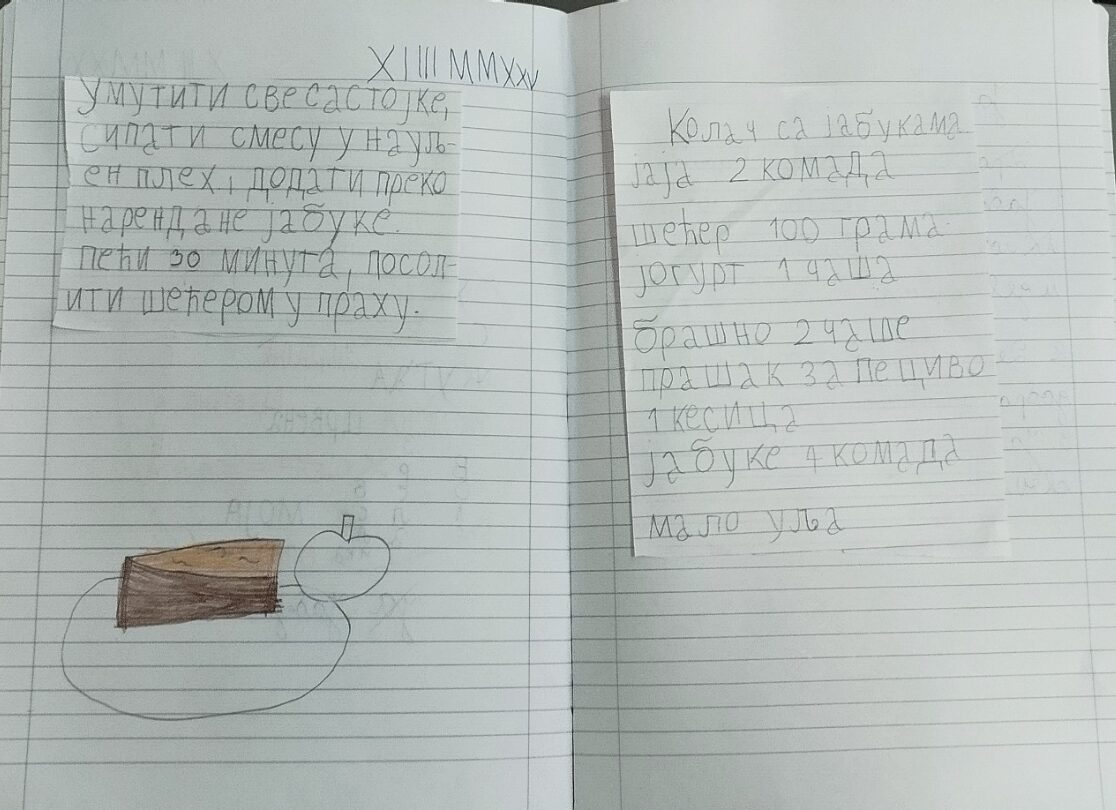 XIIII MMXXV
Умутити све састојке,
сипати смесу у науљ-
ен плех, додати преко
нарендане јабуке.
пећи 30 минута, посол-
ити шећером у праху.
Колач са јабукама
јаја 2 комада
шећер 100 грама
јогурт 1 чаша
брашно 2 чаше
прашак за пециво
1 кесица
јабуке 4 комада
мало уља